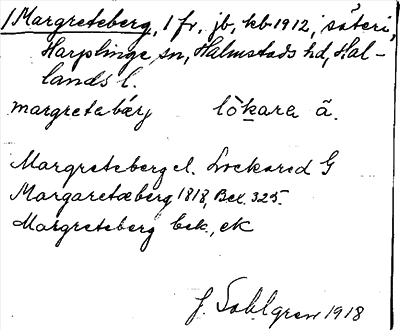 /Margreteberg, 1 fr, jb, kb 1912, säteri,
Harplinge sn, Halmstads hd, Hal-
lands l.
margretabärj lökara ä.
Margreteberg el. Lockared G
Margaretæberg 1818, Bex. 325.
Margreteberg bek., ek
J. Sahlgren 1918